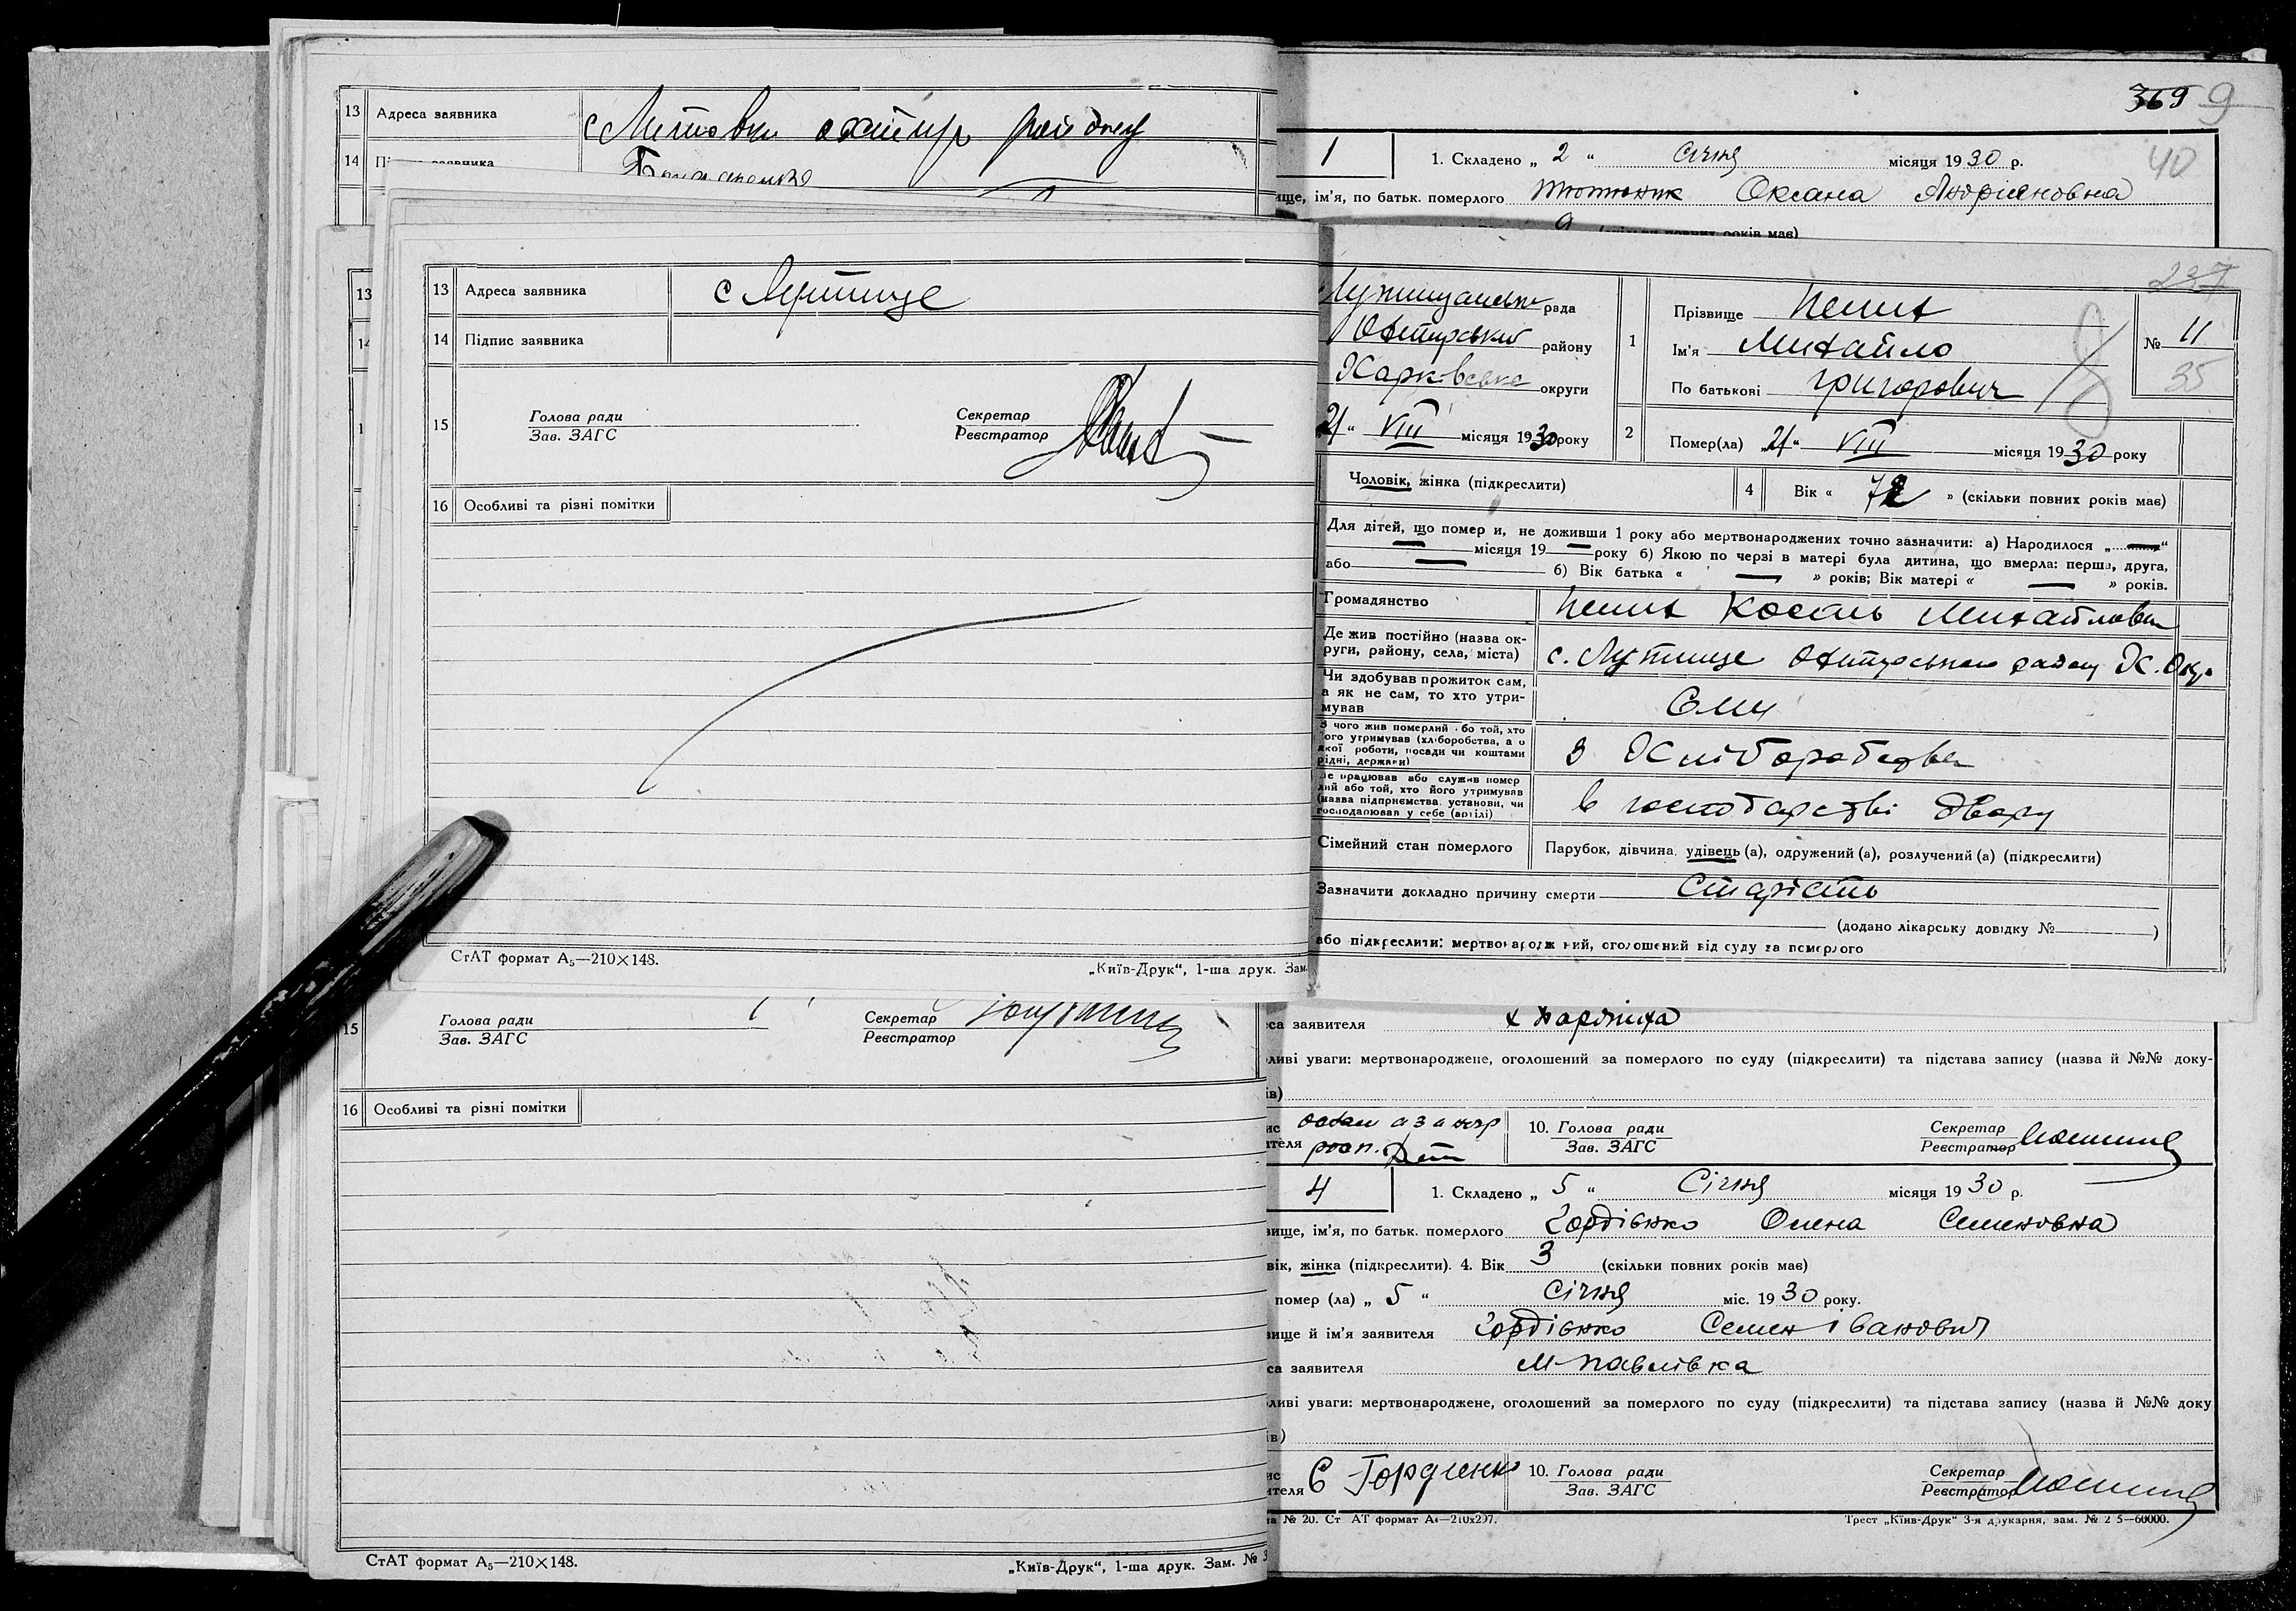 369 9
40
13 Адреса заявника с Литовки охтир району
14 заявника
1 1. Складено „ 2 “ січня місяця 1930 р.
ище, ім’я, по батьк. померлого Тютюник Оксана Андріяновна
237
13 Адреса заявника с Лутище
14 Підпис заявника
15 Голова ради Секретар
Зав. ЗАГС Реєстратор
16 Особливі та різні помітки
СтАТ формат А₅—210×148.
„Київ-Друк“, 1-ша друк. Зам.
рада
району
Харківська округи
1 Прізвище
Ім’я Михайло
По батькові Григорович
№ 11
35
21 “ VIII місяця 1930 року
2 Помер(ла) „21“ VIII місяця 1930 року
Чоловік, жінка (підкреслити)
4 Вік « 72 » (скільки повних років має)
Для дітей, що помер и, не доживши 1 року або мертвонароджених точно зазначити: а) Народилося „ — “
— місяця 19 — року б) Якою по черзі в матері була дитина, що вмерла: перша, друга,
або — б) Вік батька « — » років; Вік матері « — » років.
Громадянство Михайлович
Де жив постійно (назва ок-
руги, району, села, міста) с. Лутище Охтирського району Х. Окр.
Чи здобував прожиток сам,
а як не сам, то хто утри-
мував
З чого жив померлий або той, хто
його утримував (хліборобства, а о
якої роботи, посади чи коштами
рідні, держави) З Хліборобства
Де працював або служив помер
лий або той, хто його утримував
(назва підприємства, установи, чи
господарював у себе (артілі) в господарстві двору
Сімейний стан померлого Парубок, дівчина, удівець (а), одружений (а), розлучений (а) (підкреслити)
Зазначити докладно причину смерти Старість
(додано лікарську довідку № )
або підкреслити: мертвонароджений, оголошений від суду за померлого
15 Голова ради Секретар
Зав. ЗАГС Реєстратор
16 Особливі та різні помітки
СтАТ формат А₅—210×148.
„Київ-Друк“, 1-ша друк. Зам. № 3
са заявителя
ливі уваги: мертвонароджене, оголошений за померлого по суду (підкреслити) та підстава запису (назва й №№ доку-
ів)
10. Голова ради Секретар
Зав. ЗАГС Реєстратор
4 1. Складено „ 5 “ Січня місяця 1930 р.
вище, ім’я, по батьк. померлого Гордієнко Олена Семеновна
вік, жінка (підкреслити). 4. Вік 3 (скільки повних років має)
помер (ла) „ 5 “ січня міс. 1930 року.
вище й ім’я заявителя Гордієнко Семен Іванович
са заявителя М-павлівка
ливі уваги: мертвонароджене, оголошений за померлого по суду (підкреслити) та підстава запису (назва й №№ доку
ів)
ителя Є Гордиенко
10. Голова ради Секретар
Зав. ЗАГС Реєстратор
№ 20. Ст АТ формат А₄—210х297.
Трест „Київ-Друк“ 3-я друкарня, зам. № 2 5—60000.